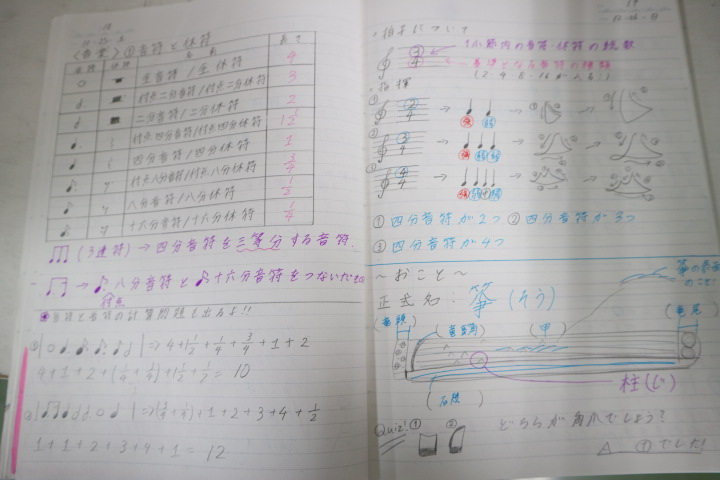 <音楽> ①音符と休符
音符 休符 名 称 長さ
全音符/全休符 4
付点二分音符/付点二分休符 3
二分音符/二分休符 2
付点四分音符/付点四分休符 1 1/2
四分音符/四分休符 1
付点八分音符/付点八分休符 3/4
八分音符/八分休符 1/2
十六分音符/十六分休符 1/4
(3連符)→四分音符を三等分する音符.
→ 八分音符と 十六分音符をつないだもの
付点
音符と音符の計算問題も出るよ!!
⇒ 4+1 1/2+1/4+3/4+1+2
4+1+2+(1/4+3/4)+1 1/2+1/2= 10
+1+2+3+4+1/2
1+1+2+3+4+1= 12
・拍子について
3/4 ← 1小節内の音符・休符の総数
← 基準となる音符の種類
・指揮
① 2/4 → 強 弱 → →
② 3/4 → 強 弱 弱 → →
③ 4/4 → → →
①四分音符が2つ ②四分音符が3つ
③四分音符が4つ
~おこと~
正式名: 箏 (そう)
(竜頭) (竜角) (甲) (竜尾)
柱(じ)
Quiz! ① ② どちらが角爪でしょう?
A ①でした!